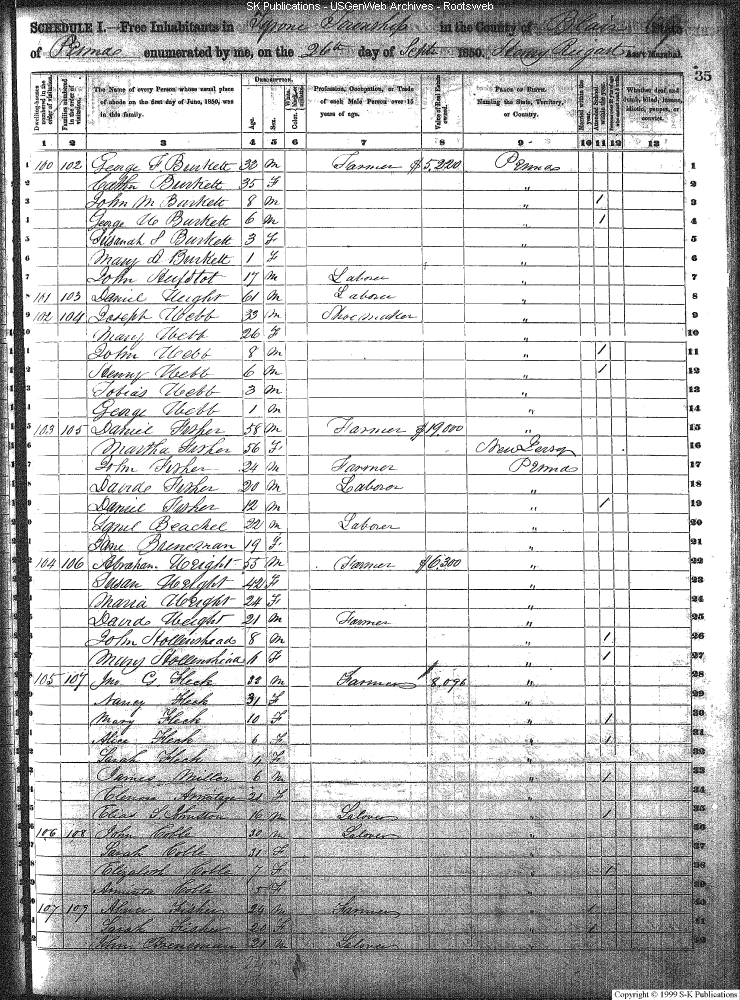 SK Publications - USGenWeb Archives - Rootsweb
SCHEDULE I.—Free Inhabitants in Tyrone Township in the County of Blair State
of Penna enumerated by me, on the 26th day of Sept 1850. Henry Ass't Marshal.
35
Dwelling-houses numbered in the order of visitation.
Families numbered in the order of visitation.
The Name of every Person whose usual place of abode on the first day of June, 1850, was in this family.
DESCRIPTION.
Age.
Sex.
Color.
Profession, Occupation, or Trade of each Male Person over 15 years of age.
Value of Real Estate owned.
PLACE OF BIRTH. Naming the State, Territory, or Country.
Married within the year.
Attended School within the year.
Whether deaf and dumb, blind, insane, idiotic, pauper, or convict.
1 2 3 4 5 6 7 8 9 10 11 12 13
1 100 102 George F. Burkett 33 M Farmer $5,220 Penna 1
2 Burkett 35 F " 2
3 John M Burkett 8 M " / 3
4 George W Burkett 6 M " / 4
5 Susanah S Burkett 3 F " 5
6 Mary Burkett 1 F " 6
7 John 17 M Laborer " 7
8 101 103 Daniel Weight 61 M Laborer " 8
9 102 104 Joseph Webb 33 M Shoemaker " 9
10 Mary Webb 26 F " 10
11 John Webb 8 M " / 11
12 Henry Webb 6 M " / 12
13 Tobias Webb 3 M " 13
14 George Webb 1 M " 14
15 103 105 Daniel Fisher 58 M Farmer $19,000 " 15
16 Martha Fisher 56 F New Jersey 16
17 John Fisher 24 M Farmer Penna 17
18 David Fisher 20 M Laborer " 18
19 Daniel Fisher 12 M " / 19
20 Beachel 22 M Laborer " 20
21 Jane 19 F " 21
22 104 106 Abraham Weight 55 M Farmer $6,300 " 22
23 Susan Weight 42 F " 23
24 Maria Weight 24 F " 24
25 David Weight 21 M Farmer " 25
26 John Hollenshead 8 M " / 26
27 Mary Hollenshead 6 F " / 27
28 105 107 Jno. G. Fleck 32 M Farmer 8,096 " 28
29 Nancy Fleck 31 F " 29
30 Mary Fleck 10 F " / 30
31 Alice Fleck 6 F " / 31
32 Sarah Fleck 4 F " 32
33 James Miller 6 M " / 33
34 Armitage 21 F " 34
35 Elias 16 M Laborer " / 35
36 106 108 John Coble 30 M Laborer " 36
37 Sarah Coble 31 F " 37
38 Elizabeth Coble 7 F " / 38
39 Coble 5 F " 39
40 107 109 Abner Fisher 24 M Farmer " / 40
41 Sarah Fisher 20 F " / 41
42 John Breneman 21 M Laborer " 42
Copyright © 1999 S-K Publications